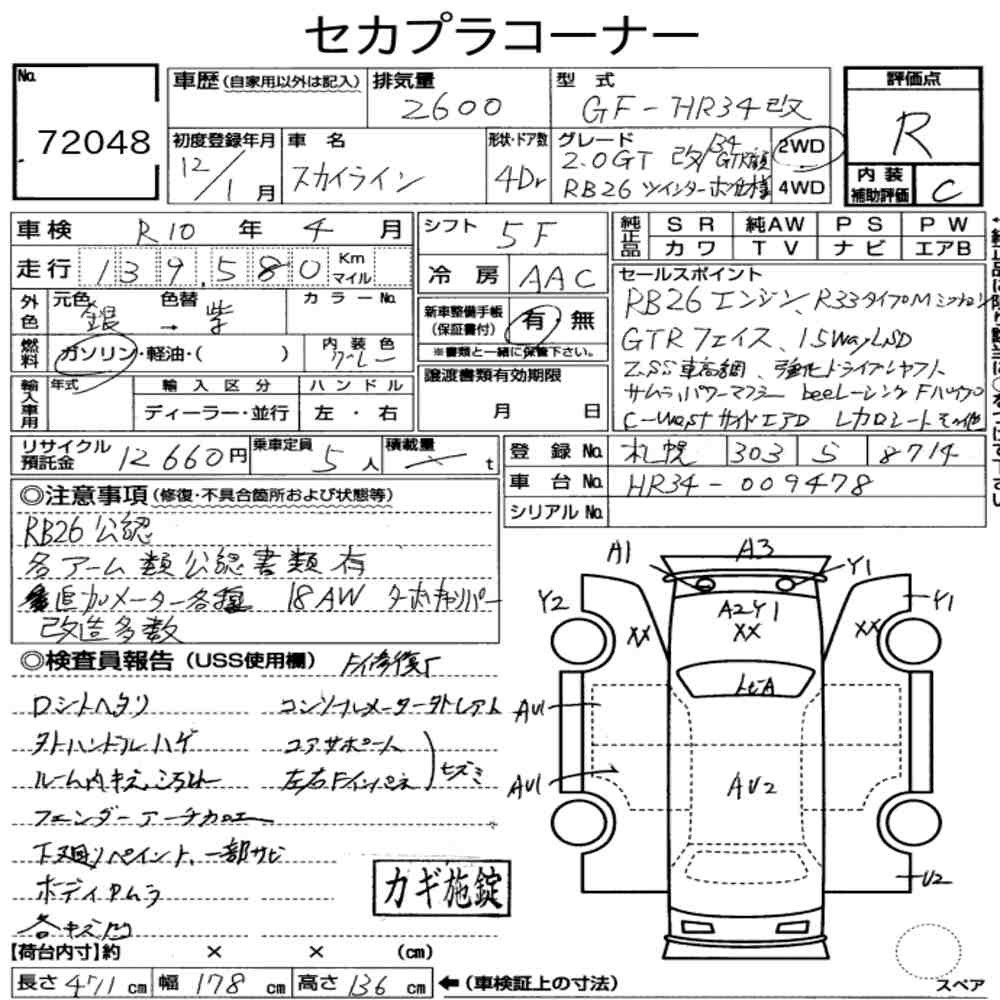 セカプラコーナー
No.
72048
車歴(自家用以外は記入)
排気量
2600
型式
GF-HR34改
評価点
R
初度登録年月
12/1月
車名
スカイライン
形状・ドア数
4Dr
グレード
2.0GT 改/34GTR顔
RB26 ツインターボ仕様
2WD
4WD
内装補助評価
C
車検 R10年 4月
シフト 5F
純正品
SR 純AW PS PW
カワ TV ナビ エアB
走行 139,580 Km マイル
冷房 AAC
セールスポイント
RB26エンジン、R33タイプMミッション
GTRフェイス、1.5WayLSD
ZSS車高調、強化ドライブシャフト
サムライパワーマフラー beeレーシングFバンパー
C-Westサイドエアロ レカロシートその他
外色
元色 銀 → 色替 紫
カラーNo.
新車整備手帳(保証書付) 有 無
※書類と一緒に保管下さい。
燃料
ガソリン・軽油・( )
内装色 グレー
譲渡書類有効期限
月 日
輸入車用
年式
輸入区分
ディーラー・並行
ハンドル
左・右
リサイクル預託金 12660円
乗車定員 5人
積載量 t
登録No. 札幌 303 8714
車台No. HR34-009478
シリアルNo.
◎注意事項(修復・不具合箇所および状態等)
RB26公認
各アーム類公認書類有
追加メーター各種 18AW ターボキャリパー
改造多数
◎検査員報告(USS使用欄)
ロントヘタリ
コンソールメーター外レアト
外ハンドルハゲ
コアサポート
ルーム内キズ、
左右Fインパネ
ヒズミ
フェンダーアーチカロエ
下廻りペイント、一部サビ
ボディPムラ
各キズ凹
カギ施錠
A1
A3
Y1
Y2
A2Y1
XX
XX
XX
Y1
AU1
AU1
AU2
U2
スペア
【荷台内寸】約 × × (cm)
長さ 471 cm 幅 178 cm 高さ 136 cm
←(車検証上の寸法)